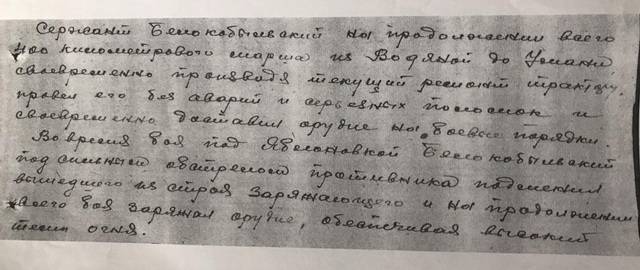 Сержант Белокобыльский на продолжении всего
400 километрового марша из Водяной до Умани
своевременно производя текущий ремонт трактору,
провел его без аварий и серьезных поломок и
своевременно доставил орудие на боевые порядки.
Во время боя под Яблоновкой Белокобыльский
под сильным обстрелом противника подменил
вышедшего из строя заряжающего и на продолжении
всего боя заряжал орудие, обеспечивая высокий
темп огня.